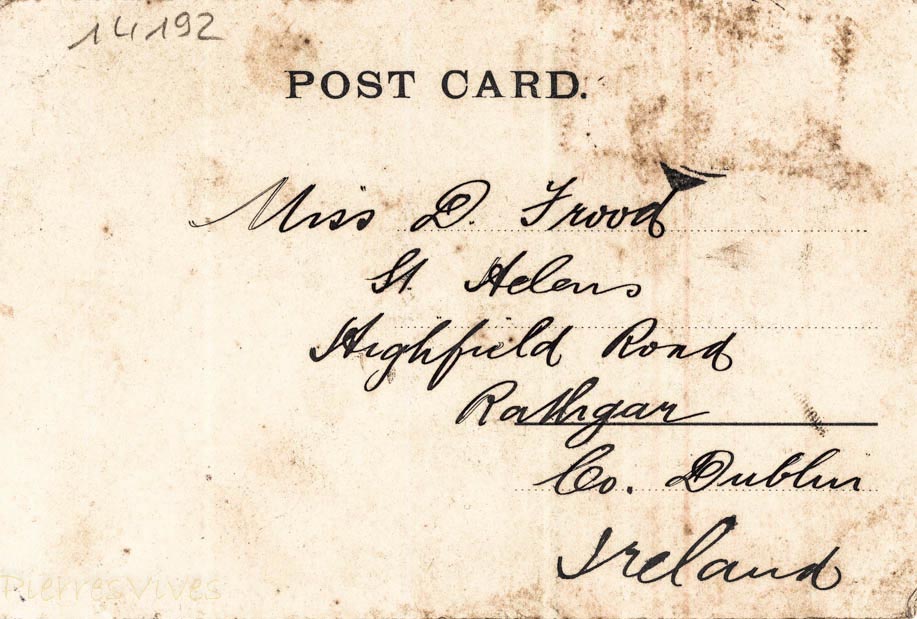 14192
POST CARD.
Miss D. Frood
St. Helens
Highfield Road
Rathgar
Co. Dublin
Ireland
PierresVives